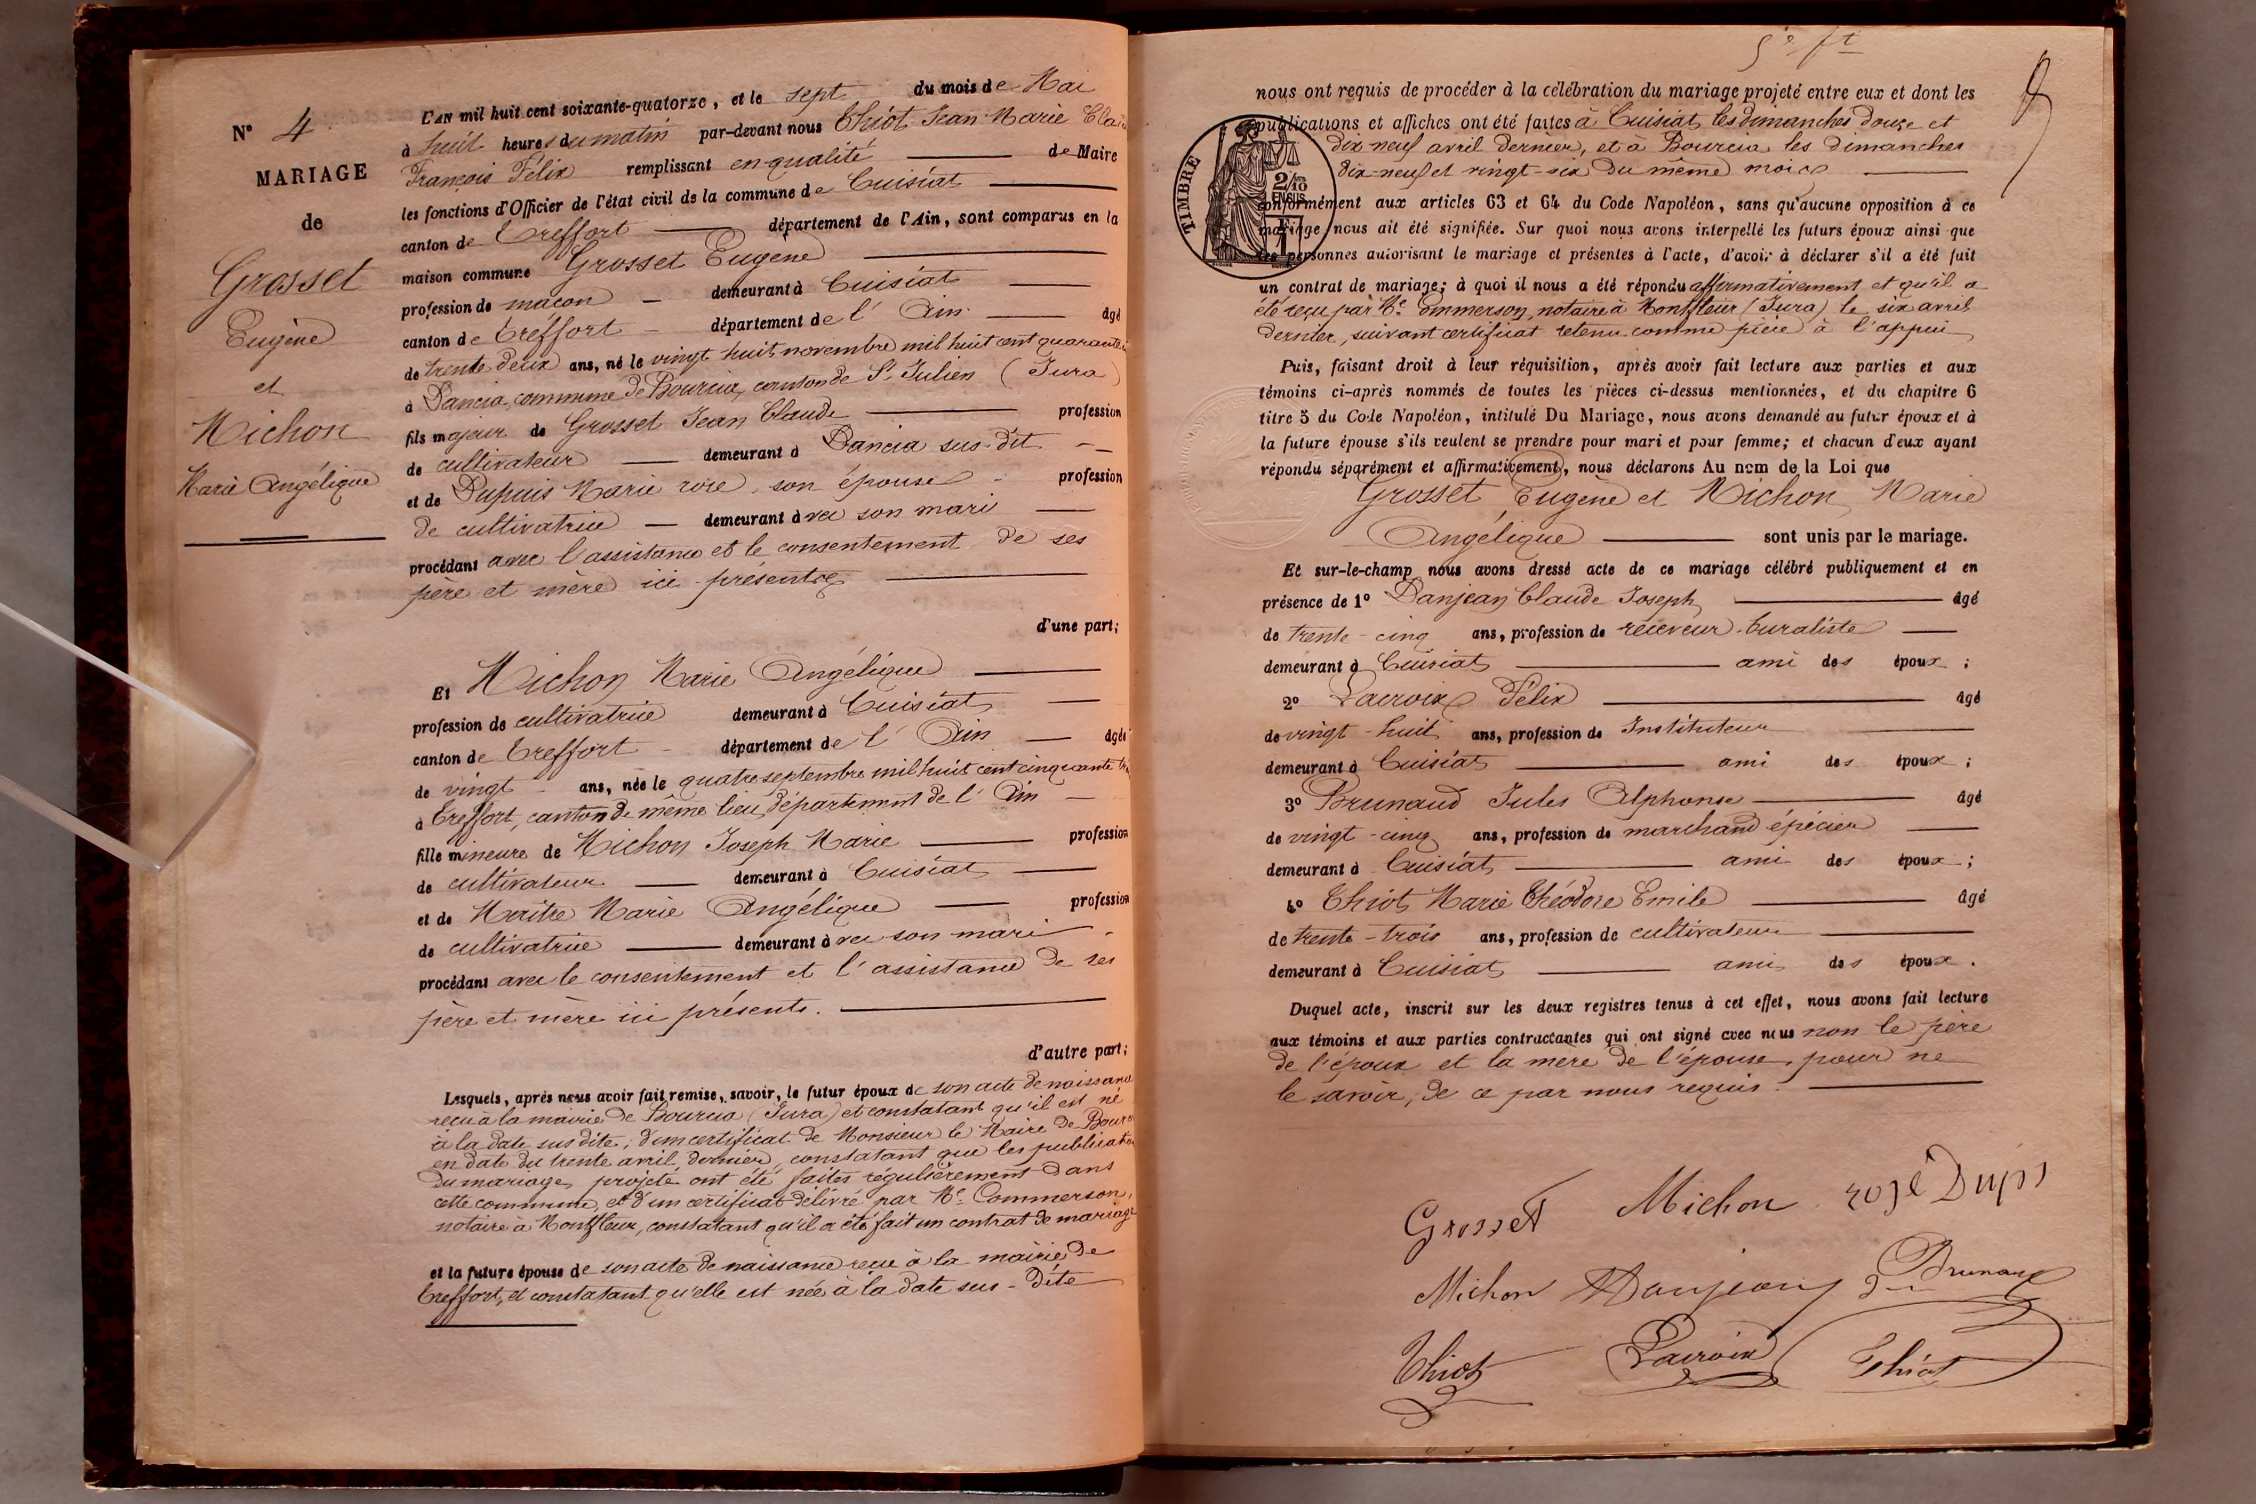 N° 4
MARIAGE
de
Grosset
Eugène
et
Michon
Marie Angélique
L'AN mil huit cent soixante-quatorze, et le sept du mois de Mai
à huit heures du matin par-devant nous Thiot Jean Marie
François Félix remplissant en qualité de Maire
les fonctions d'Officier de l'état civil de la commune de Cuisiat
canton de Treffort département de l'Ain, sont comparus en la
maison commune Grosset Eugène
profession de maçon demeurant à Cuisiat
canton de Treffort département de l'Ain âgé
de trente deux ans, né le vingt huit novembre mil huit cent quarante
à Dancia, commune de Bourcia, canton de St Julien (Jura)
fils majeur de Grosset Jean Claude profession
de cultivateur demeurant à Dancia sus-dit
et de Dupuis Marie rose, son épouse profession
de cultivatrice demeurant avec son mari
procédant avec l'assistance et le consentement de ses
père et mère ici présents
d'une part;
Et Michon Marie Angélique
profession de cultivatrice demeurant à Cuisiat
canton de Treffort département de l'Ain âgée
de vingt ans, née le quatre septembre mil huit cent cinquante
à Treffort, canton de même lieu, département de l'Ain
fille mineure de Michon Joseph Marie profession
de cultivateur demeurant à Cuisiat
et de Maitre Marie Angélique profession
de cultivatrice demeurant avec son mari
procédant avec le consentement et l'assistance de ses
père et mère ici présents.
d'autre part;
Lesquels, après nous avoir fait remise, savoir, le futur époux de son acte de naissance
reçu à la mairie de Bourcia (Jura) et constatant qu'il est né
à la date sus dite; d'un certificat de Monsieur le Maire de
en date du trente avril dernier, constatant que les
du mariage projeté ont été faites régulièrement dans
cette commune, et d'un certificat délivré par Me Commerson,
notaire à Montfleur, constatant qu'il a été fait un contrat de mariage
et la future épouse de son acte de naissance reçu à la mairie de
Treffort, et constatant qu'elle est née à la date sus-dite
nous ont requis de procéder à la célébration du mariage projeté entre eux et dont les
publications et affiches ont été faites à Cuisiat, les dimanches douze et
dix neuf avril dernier, et à Bourcia les dimanches
dix-neuf et vingt-six du même mois
TIMBRE
2/10
EN SUS
1 F
conformément aux articles 63 et 64 du Code Napoléon, sans qu'aucune opposition à ce
mariage nous ait été signifiée. Sur quoi nous avons interpellé les futurs époux ainsi que
les personnes autorisant le mariage et présentes à l'acte, d'avoir à déclarer s'il a été fait
un contrat de mariage; à quoi il nous a été répondu affirmativement et qu'il a
été reçu par Me Commerson, notaire à Montfleur (Jura) le six avril
dernier, suivant certificat retenu comme pièce à l'appui
Puis, faisant droit à leur réquisition, après avoir fait lecture aux parties et aux
témoins ci-après nommés de toutes les pièces ci-dessus mentionnées, et du chapitre 6
titre 5 du Code Napoléon, intitulé Du Mariage, nous avons demandé au futur époux et à
la future épouse s'ils veulent se prendre pour mari et pour femme; et chacun d'eux ayant
répondu séparément et affirmativement, nous déclarons Au nom de la Loi que
Grosset Eugène et Michon Marie
Angélique sont unis par le mariage.
Et sur-le-champ nous avons dressé acte de ce mariage célébré publiquement et en
présence de 1° Danjean Claude Joseph âgé
de trente-cinq ans, profession de receveur buraliste
demeurant à Cuisiat ami des époux;
2° Lacroix Félix âgé
de vingt-huit ans, profession de Instituteur
demeurant à Cuisiat ami des époux;
3° Brunaud Jules Alphonse âgé
de vingt-cinq ans, profession de marchand épicier
demeurant à Cuisiat ami des époux;
4° Thiot Marie Théodore Emile âgé
de trente-trois ans, profession de cultivateur
demeurant à Cuisiat ami des époux.
Duquel acte, inscrit sur les deux registres tenus à cet effet, nous avons fait lecture
aux témoins et aux parties contractantes qui ont signé avec nous non le père
de l'époux et la mère de l'épouse, pour ne
le savoir, de ce par nous requis.
Grosset Michon rose Dupis
Michon Danjean Brunaud
Thiot Lacroix Thiot